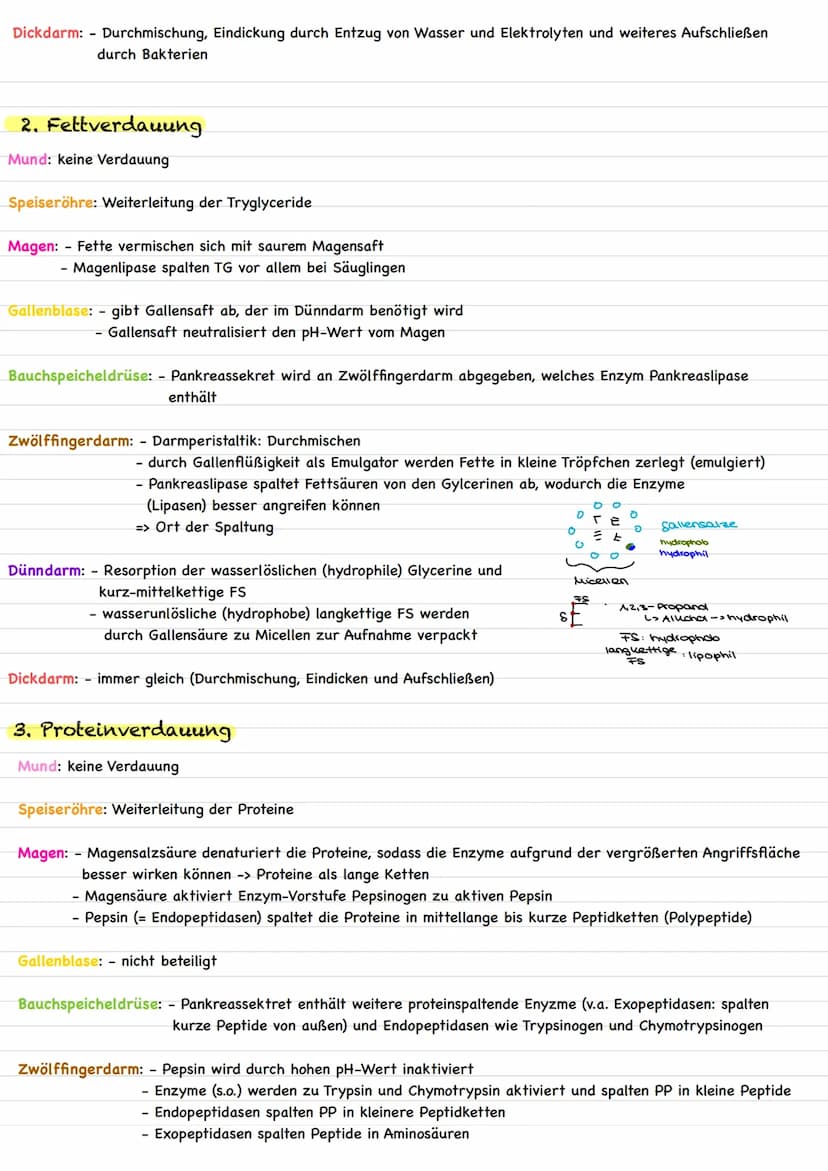 Dickdarm: - Durchmischung, Eindickung durch Entzug von Wasser und Elektrolyten und weiteres Aufschließen
durch Bakterien
2. Fettverdauung
Mund: keine Verdauung
Speiseröhre: Weiterleitung der Tryglyceride
Magen: - Fette vermischen sich mit saurem Magensaft
- Magenlipase spalten TG vor allem bei Säuglingen
Gallenblase: - gibt Gallensaft ab, der im Dünndarm benötigt wird
- Gallensaft neutralisiert den pH-Wert vom Magen
Bauchspeicheldrüse: - Pankreassekret wird an Zwölffingerdarm abgegeben, welches Enzym Pankreaslipase
enthält
Zwölffingerdarm: - Darmperistaltik: Durchmischen
- durch Gallenflüßigkeit als Emulgator werden Fette in kleine Tröpfchen zerlegt (emulgiert)
- Pankreaslipase spaltet Fettsäuren von den Gylcerinen ab, wodurch die Enzyme
(Lipasen) besser angreifen können
=> Ort der Spaltung
Gallensalze
hydrophob
hydrophil
Micellen
Dünndarm: - Resorption der wasserlöslichen (hydrophile) Glycerine und
kurz-mittelkettige FS
- wasserunlösliche (hydrophobe) langkettige FS werden
durch Gallensäure zu Micellen zur Aufnahme verpackt
FS
1,2,3-Propanol
↳ Alkohol -> hydrophil
FS: hydrophob
langkettige : lipophil
FS
Dickdarm: - immer gleich (Durchmischung, Eindicken und Aufschließen)
3. Proteinverdauung
Mund: keine Verdauung
Speiseröhre: Weiterleitung der Proteine
Magen: - Magensalzsäure denaturiert die Proteine, sodass die Enzyme aufgrund der vergrößerten Angriffsfläche
besser wirken können -> Proteine als lange Ketten
- Magensäure aktiviert Enzym-Vorstufe Pepsinogen zu aktiven Pepsin
- Pepsin (= Endopeptidasen) spaltet die Proteine in mittellange bis kurze Peptidketten (Polypeptide)
Gallenblase: - nicht beteiligt
Bauchspeicheldrüse: - Pankreassektret enthält weitere proteinspaltende Enyzme (v.a. Exopeptidasen: spalten
kurze Peptide von außen) und Endopeptidasen wie Trypsinogen und Chymotrypsinogen
Zwölffingerdarm: - Pepsin wird durch hohen pH-Wert inaktiviert
- Enzyme (s.o.) werden zu Trypsin und Chymotrypsin aktiviert und spalten PP in kleine Peptide
- Endopeptidasen spalten PP in kleinere Peptidketten
- Exopeptidasen spalten Peptide in Aminosäuren